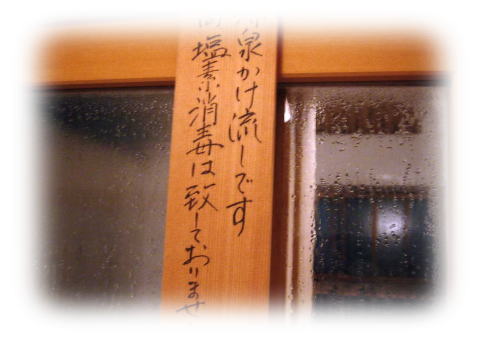 泉かけ流しです
塩素消毒は致しておりませ